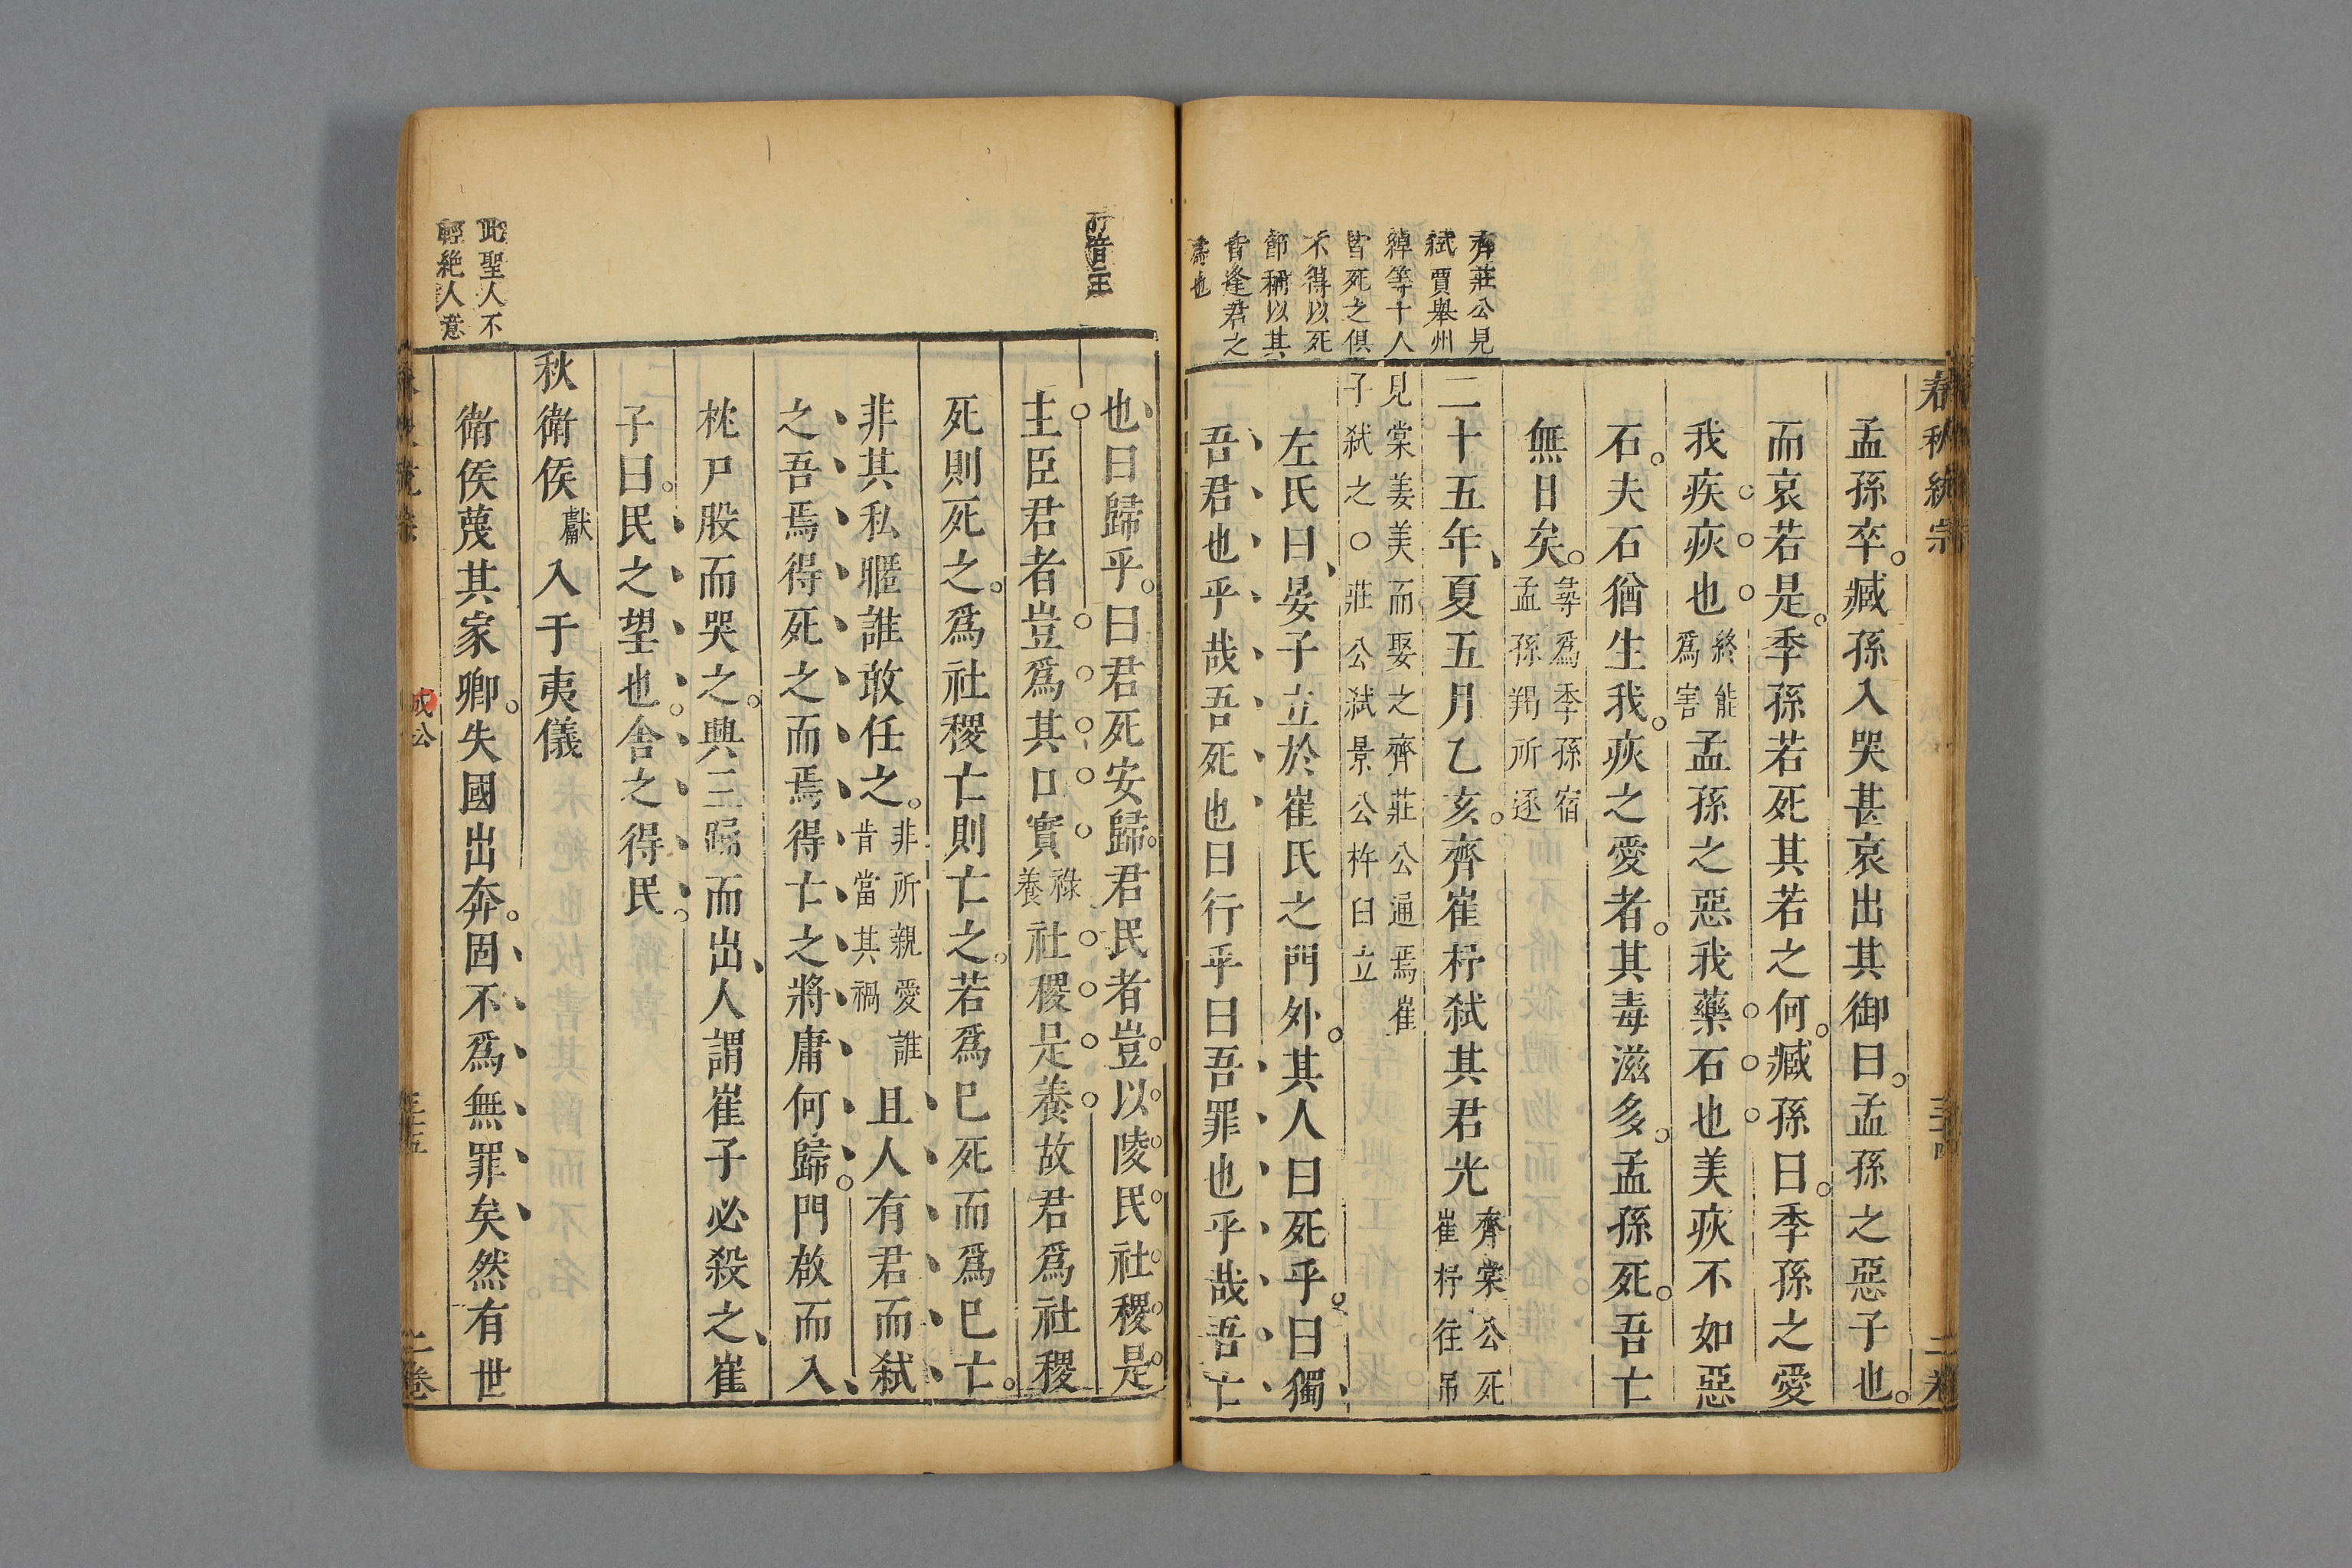 春秋統宗
二卷
齊莊公見
弑賈舉州
綽等十人
皆死之俱
不得以死
節稱以其
皆逢君之
也
孟孫卒臧孫入哭甚哀出其御曰孟孫之惡子也
而哀若是季孫若死其若之何臧孫曰季孫之愛
我疾疢也終能為害孟孫之惡我藥石也美疢不如惡
石夫石猶生我疢之愛者其毒滋多孟孫死吾亡
無日矣尋爲季孫宿孟孫羯所逐
二十五年夏五月乙亥齊崔杼弑其君光齊棠公死崔杼往吊
見棠姜美而娶之齊莊公通焉崔
子弑之○莊公弑景公杵臼立
左氏曰晏子立於崔氏之門外其人曰死乎曰獨
吾君也乎哉吾死也曰行乎曰吾罪也乎哉吾亡
也曰歸乎曰君死安歸君民者豈以陵民社稷是
主臣君者豈爲其口實祿養社稷是養故君爲社稷
死則死之爲社稷亡則亡之若爲巳死而爲巳亡
非其私暱誰敢任之非所親愛誰肯當其禍且人有君而弑
之吾焉得死之而焉得亡之將庸何歸門啟而入
枕尸股而哭之興三踊而出人謂崔子必殺之崔
子曰民之望也舍之得民
秋衛侯獻入于夷儀
此聖人不
輕絶人意
衛侯蔑其家卿失國出奔固不爲無罪矣然有世
成公
二卷